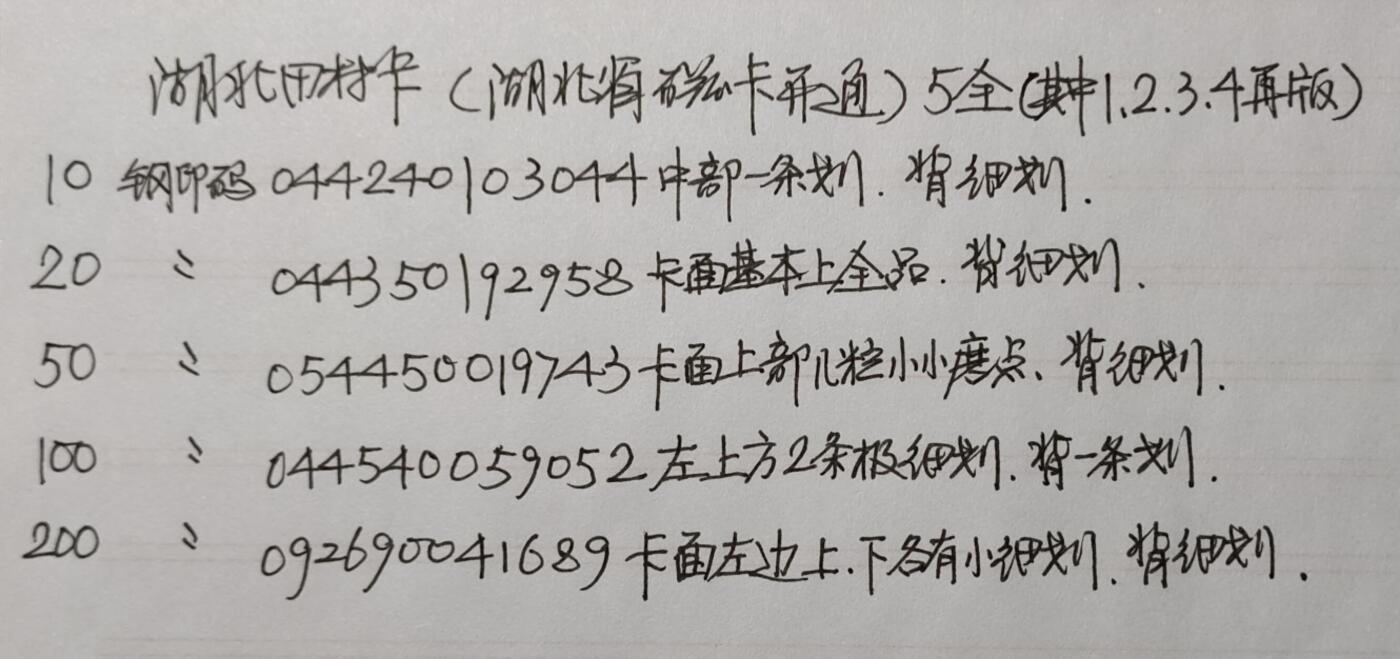 湖北田村卡（湖北省磁卡开通）5全（其中1.2.3.4再版）
10 钢印码 044240103044 中部一条划. 背细划.
20 〃 044350192958 卡面基本上全品. 背细划.
50 〃 054450019743 卡面上部几粒小小磨点、背细划.
100 〃 044540059052 左上方2条极细划. 背一条划.
200 〃 092690041689 卡面左边上.下各有小细划. 背细划.